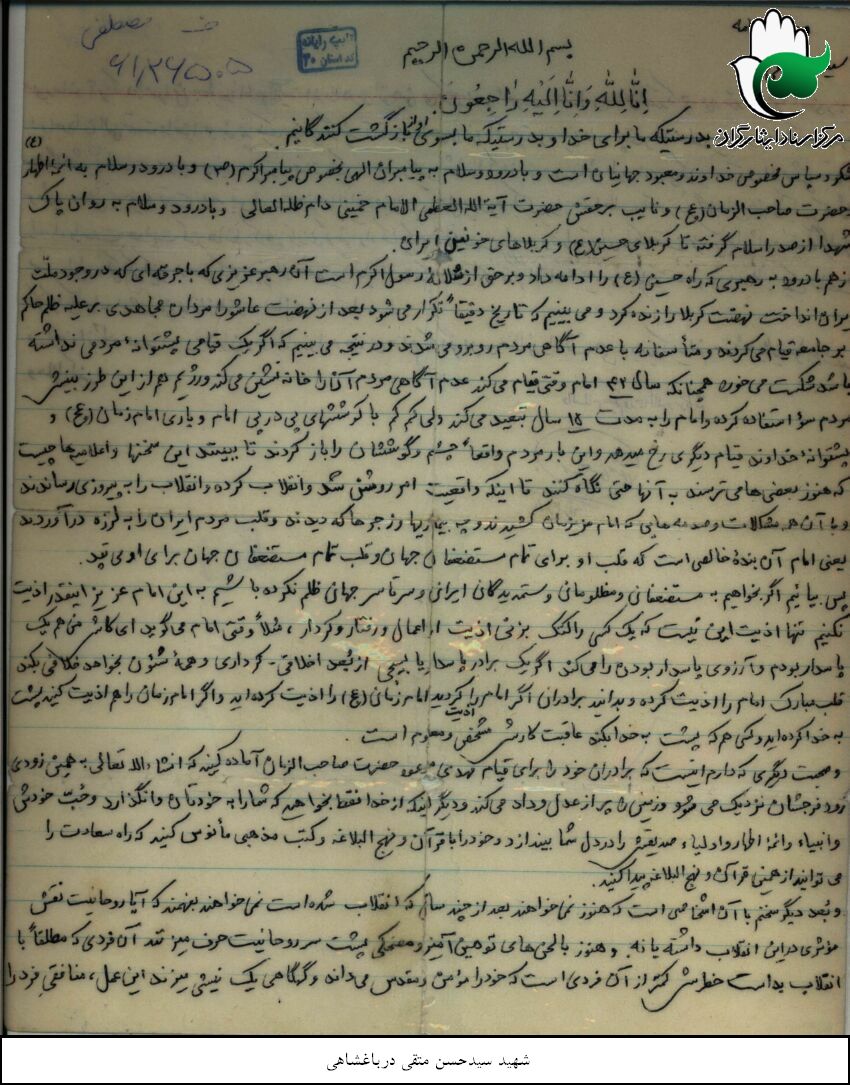 مصطفی
۶۱۲۶۵۰۵
کد استان ۳۰
بسم الله الرحمن الرحیم
مرکز اسناد ایثارگران
اِنّا لِلّهِ وَاِنّا اِلَیْهِ رٰاجِعُونَ.
بدرستیکه ما برای خدا و بدرستیکه ما بسوی او بازگشت کنندگانیم.
شکر و سپاس مخصوص خداوند و معبود جهانیان است و با درود و سلام به پیامبران الهی بخصوص پیامبر اکرم (ص) و با درود و سلام به ائمهٔ اطهار (ع)
حضرت صاحب الزمان (عج) و نایب برحقش حضرت آیة الله العظمی الامام خمینی دام ظله العالی و با درود و سلام به روان پاک
شهدا از صدر اسلام گرفته تا کربلای حسین (ع) و کربلاهای خونین ایران.
باز هم با درود به رهبری که راه حسین (ع) را ادامه داد و برحق از سلالهٔ رسول اکرم است آن رهبر عزیزی که با جرقه‌ای که در وجود ملت
ایران انداخت نهضت کربلا را زنده کرد و می بینیم که تاریخ دقیقاً تکرار می شود بعد از نهضت عاشورا مردان مجاهدی بر علیه ظلم حاکم
بر جامعه قیام می کردند و متأسفانه با عدم آگاهی مردم روبرو می شدند و در نتیجه می بینیم که اگر یک قیامی پشتوانهٔ مردمی نداشته
باشد شکست می خورد همچنانکه سال ۴۲ امام وقتی قیام می کند عدم آگاهی مردم آنرا خانه نشین می کند و رژیم هم از این طرز بینش
مردم سؤ استفاده کرده و امام را به مدت ۱۵ سال تبعید می کند ولی کم کم با کوششهای پی در پی امام و یاری امام زمان (عج) و
پشتوانهٔ خداوند قیام دیگری رخ میدهد و این بار مردم واقعاً چشم و گوششان را باز کردند تا ببینند این سخنها و اعلامیه‌ها چیست
که هنوز بعضی ها می ترسند به آنها حتی نگاه کنند تا اینکه واقعیت امر روشن شد و انقلاب کرده و انقلاب را به پیروزی رساندند
و با آن همه مشکلات و صدمه هایی که امام عزیزمان کشیدند و چه بیماریها و زجرها که دیدند و قلب مردم ایران را به لرزه درآوردند
یعنی امام آن بندهٔ خالصی است که قلب او برای تمام مستضعفان جهان و قلب تمام مستضعفان جهان برای او می تپد.
پس بیائیم اگر بخواهیم به مستضعفانی و مظلومان و ستمدیدگان ایرانی و سرتاسر جهان ظلم نکرده باشیم به این امام عزیز اینقدر اذیت
نکنیم تنها اذیت این نیست که یک کسی را کتک بزنی اذیت از اعمال و رفتار و کردار، مثلاً وقتی امام می گوید ای کاش من هم یک
پاسدار بودم و آرزوی پاسدار بودن را می کند اگر یک برادر پاسدار یا بسیجی از بُعد اخلاقی - کرداری و همهٔ شئون بخواهد خلافی بکند
قلب مبارک امام را اذیت کرده و بدانید برادران اگر امام را اذیت کردید امام زمان (عج) را اذیت کرده اید و اگر امام زمان را هم اذیت کنید پشت
به خدا کرده اید و کسی هم که پشت به خدا بکند عاقبت کارش مشخص و معلوم است.
و صحبت دیگری که دارم اینست که برادران خود را برای قیام مهدی موعود حضرت صاحب الزمان آماده کنید که انشاءالله تعالی به همین زودی
زود فرجشان نزدیک می شود و زمین را پر از عدل و داد می کند و دیگر اینکه از خدا فقط بخواهید که شما را به خودتان وانگذارد و حُبّ خودش
و انبیاء و ائمهٔ اطهار و اولیاء صدیقش را در دل شما بیندازد و خود را با قرآن و نهج البلاغه و کتب مذهبی مأنوس کنید که راه سعادت را
می توانید از همین قرآن و نهج البلاغه پیدا کنید.
و بُعد دیگر سخنم با آن اشخاصی است که هنوز نمی خواهند بعد از چند سال که انقلاب شده است نمی خواهند بفهمند که آیا روحانیت نقش
مؤثری در این انقلاب داشته یا نه. و هنوز با لحن های توهین آمیز و مضحکی پشت سر روحانیت حرف میزنند آن فردی که مطلقاً با
انقلاب بد است خطرش کمتر از آن فردی است که خود را مؤمن و مقدس می داند و گهگاهی یک نیشی میزند این عمل، منافقی فرد را
شهید سیدحسن متقی درباغشاهی